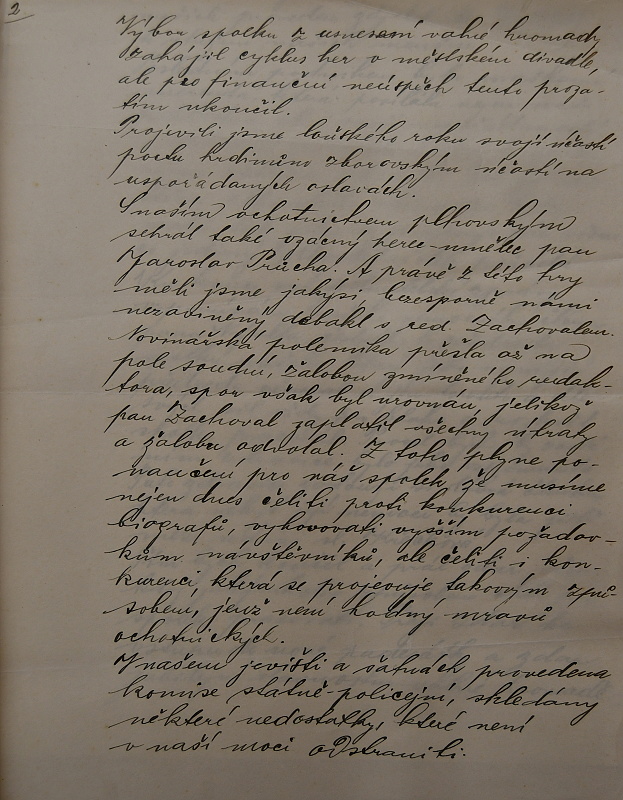 2
Výbor spolku z usnesení valné hromady
zahájil cyklus her v městském divadle,
ale pro finanční neúspěch tento proza-
tím ukončil.
Projevili jsme loňského roku svojí účastí
poctu hrdinům zborovským účastí na
uspořádaných oslavách.
S naším ochotnictvem plhovským
sehrál také vzácný herec-umělec pan
Jaroslav Průcha. A právě z této hry
měli jsme jakýsi, bezesporně námi
nezaviněný debakl s red. Zachovalem.
Novinářská polemika přešla až na
pole soudní, žalobou zmíněného redak-
tora, spor však byl urovnán, jelikož
pan Zachoval zaplatil všechny útraty
a žalobu odvolal. Z toho plyne po-
naučení pro náš spolek, že musíme
nejen dnes čeliti proti konkurenci
biografů, vyhovovati vyšším požadav-
kům návštěvníků, ale čeliti i kon-
kurenci, která se projevuje takovým způ-
sobem, jenž není hodný mravů
ochotnických.
V našem jevišti a šatnách provedena
komise, státně-policejní, shledány
některé nedostatky, které není
v naší moci odstraniti.